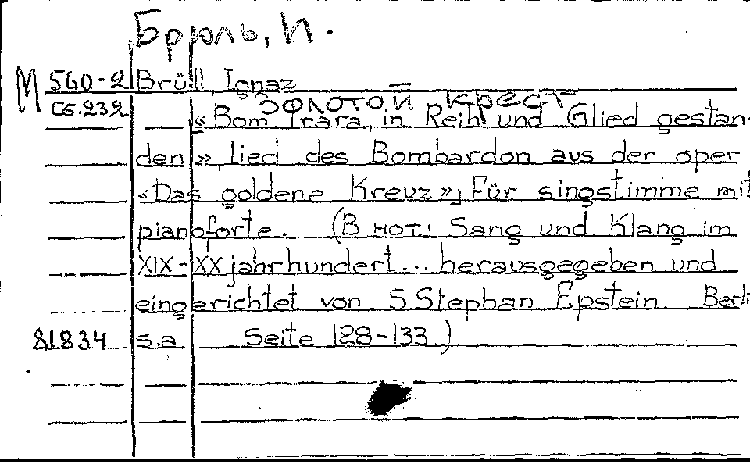 Брюль, И.
М 560-2 Brüll, Ignaz
Сб.232 Золотой крест
«Bom Trara, in Reih und Glied gestan-
den», lied des Bombardon aus der oper
«Das goldene Kreuz», Für singstimme mit
pianoforte. (В нот.: Sang und Klang im
XIX-XX jahrhundert... herausgegeben und
eingerichtet von S. Stephan Epstein. Berli
81834 s.a. Seite 128-133.)